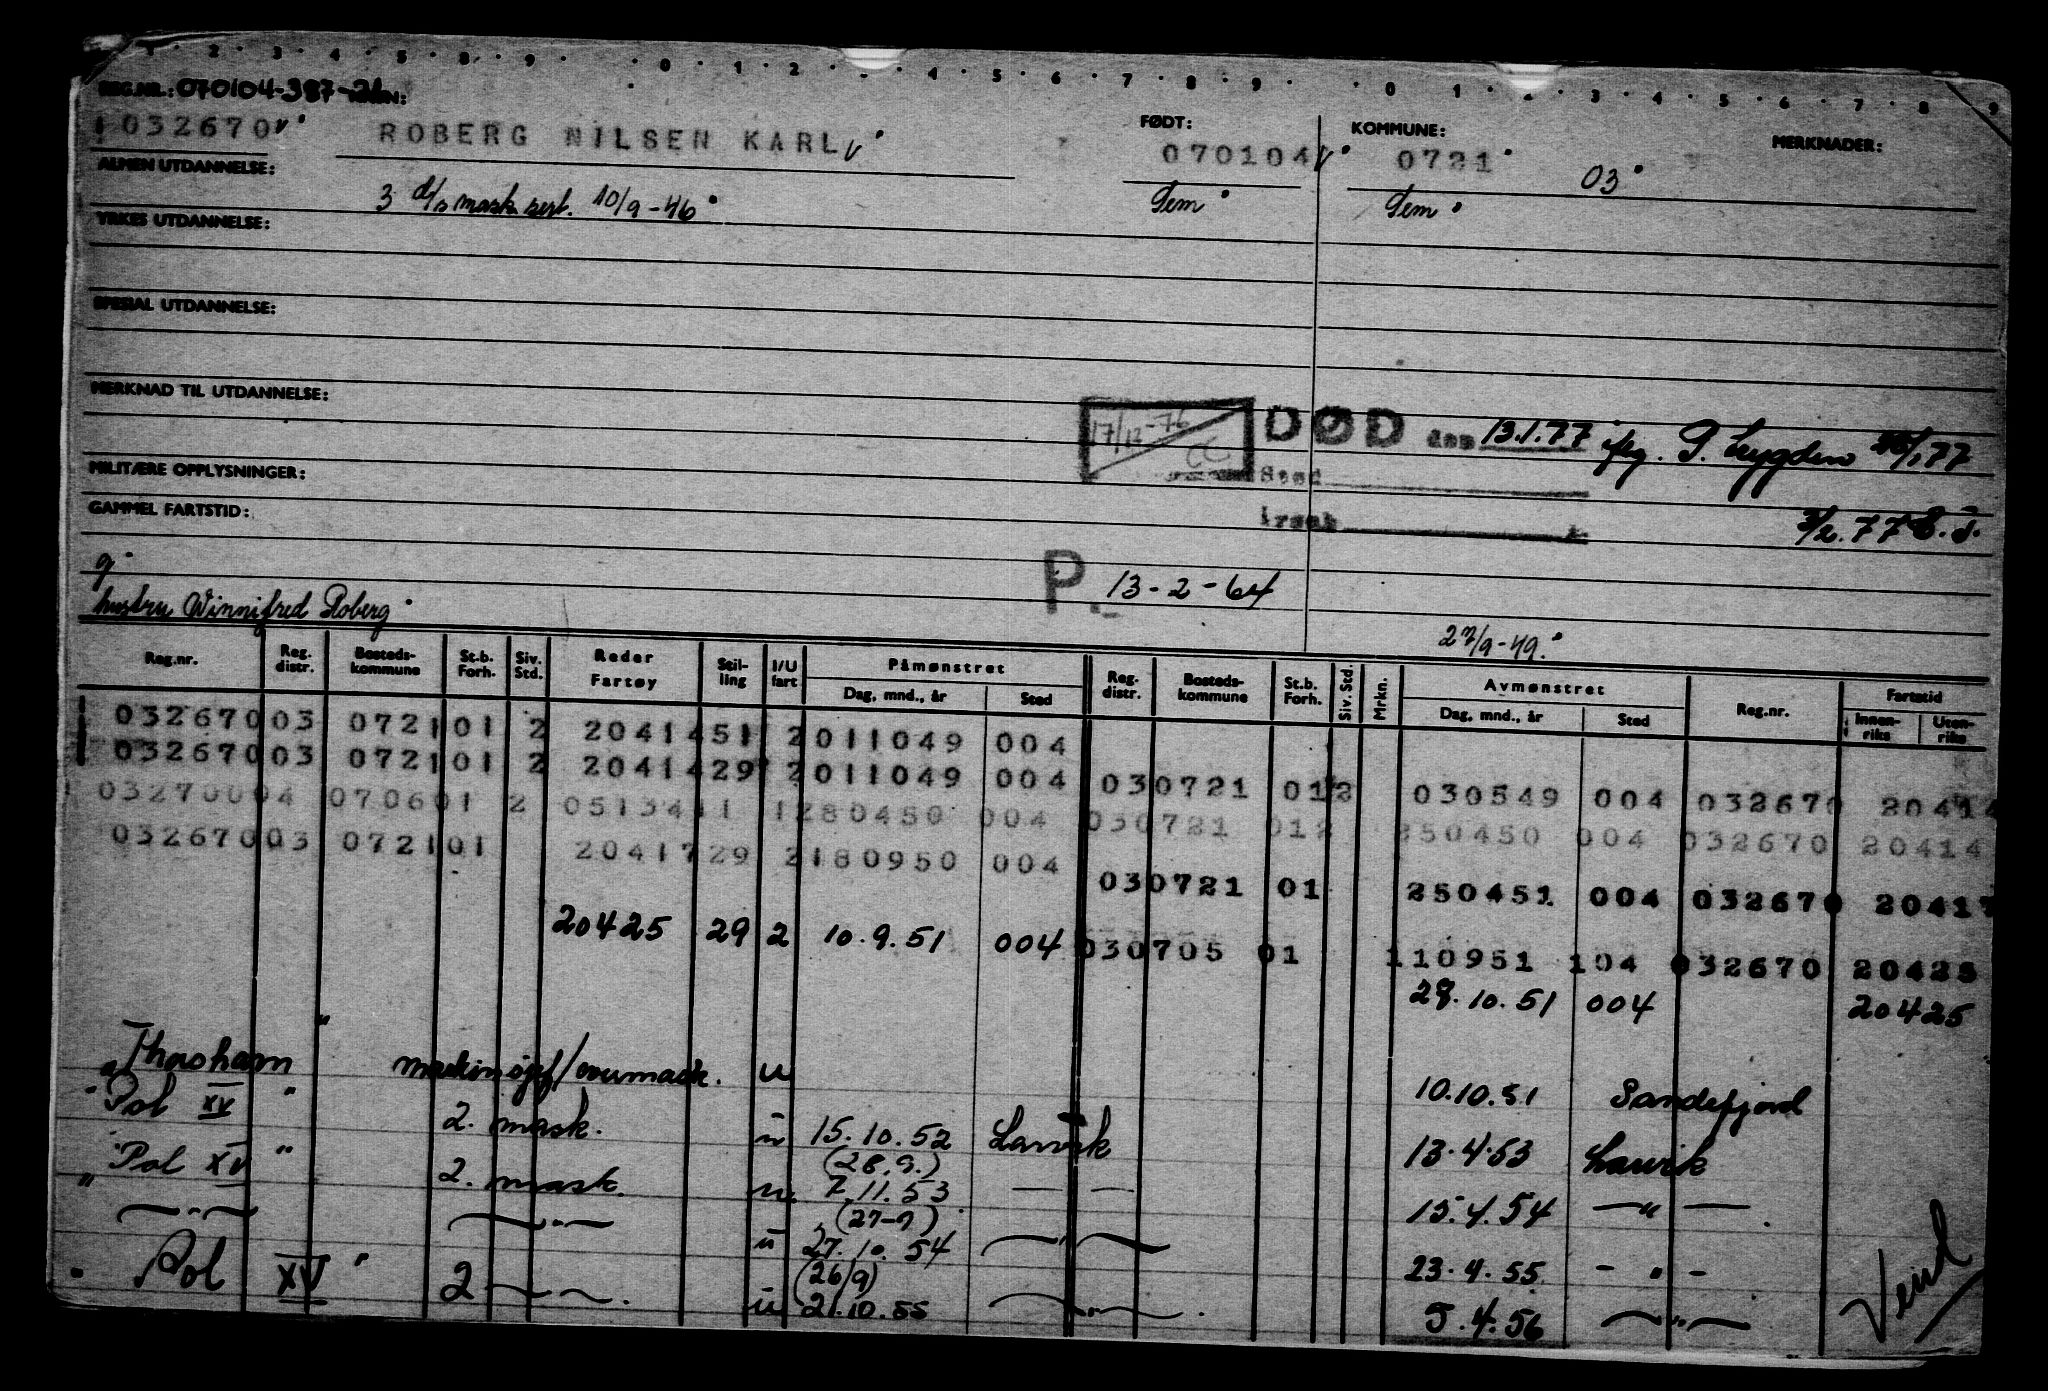 1 · 2 · 3 · 4 · 5 · 8 · 9 · · 0 · 1 · 2 · · 4 · 5 · 6 · 7 · 8 · 9 · · 0 1 · · 3 · 4 · 5 · 6 · 7 · 8 9
REG.NR.: 070104-387-21 NAVN:
1032670 ROBERG NILSEN KARL
FØDT: 070104
KOMMUNE: 0721 03
MERKNADER:
Sem Sem
ALMEN UTDANNELSE: 3 kl/s mask sert. 10/9-46
YRKES UTDANNELSE:
SPESIAL UTDANNELSE:
MERKNAD TIL UTDANNELSE:
17/12-76
DØD den 13.1.77 iflg. 77
MILITÆRE OPPLYSNINGER:
Sted
GAMMEL FARTSTID:
Årsak
3/2.77
g
P. 13-2-64
hustru Winnifred Roberg
27/9-49.
Reg.nr. Reg. distr. Bosteds-kommune St.b. Forh. Siv. Std. Reder Fartøy Stil-ling I/U fart Påmønstret Dag, mnd., år Sted Reg. distr. Bosteds-kommune St.b. Forh. Siv. Std. Mrkn. Avmønstret Dag, mnd., år Sted Reg.nr. Fartstid Innen-riks Uten-riks
032670 03 0721 01 2 20414 51 2 011049 004
032670 03 0721 01 2 20414 29 2 011049 004 03 0721 01 2 030549 004 032670 20414
032700 04 0706 01 2 05134 11 1 280450 004 03 0721 01 2 250450 004 032670 20414
032670 03 0721 01 20417 29 2 180950 004
03 0721 01 250451 004 032670 20417
20425 29 2 10.9.51 004 03 0705 01 110951 104 032670 20425
29.10.51 004 20425
"Thorshavn" maskinsjef/overmask. u 10.10.51 Sandefjord
"Pol XV" 2. mask. u 15.10.52 Larvik 13.4.53 Larvik
(28.9.)
"Pol XV" 2. mask. u. 7.11.53 — — 15.4.54 — " —
(27-9)
" — " — — " — u 27.10.54 — " — 23.4.55 — " —
(26/9)
"Pol XV" 2 — " — . u 21.10.55 — " — . 5.4.56 — " —
Vend